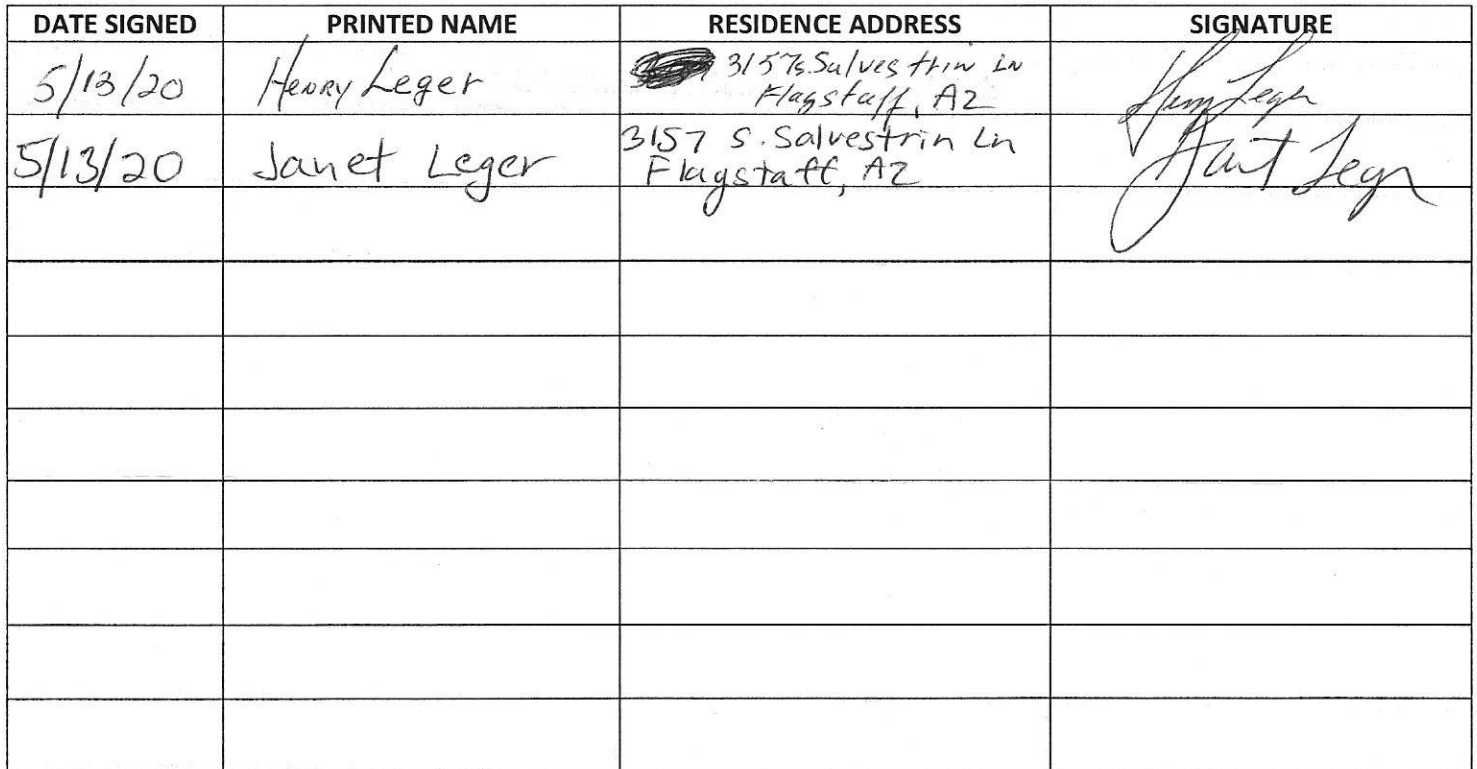 DATE SIGNED PRINTED NAME RESIDENCE ADDRESS SIGNATURE
5/13/20 Henry Leger 3157 S. Salvestrin Ln
Flagstaff, AZ
5/13/20 Janet Leger 3157 S. Salvestrin Ln
Flagstaff, AZ